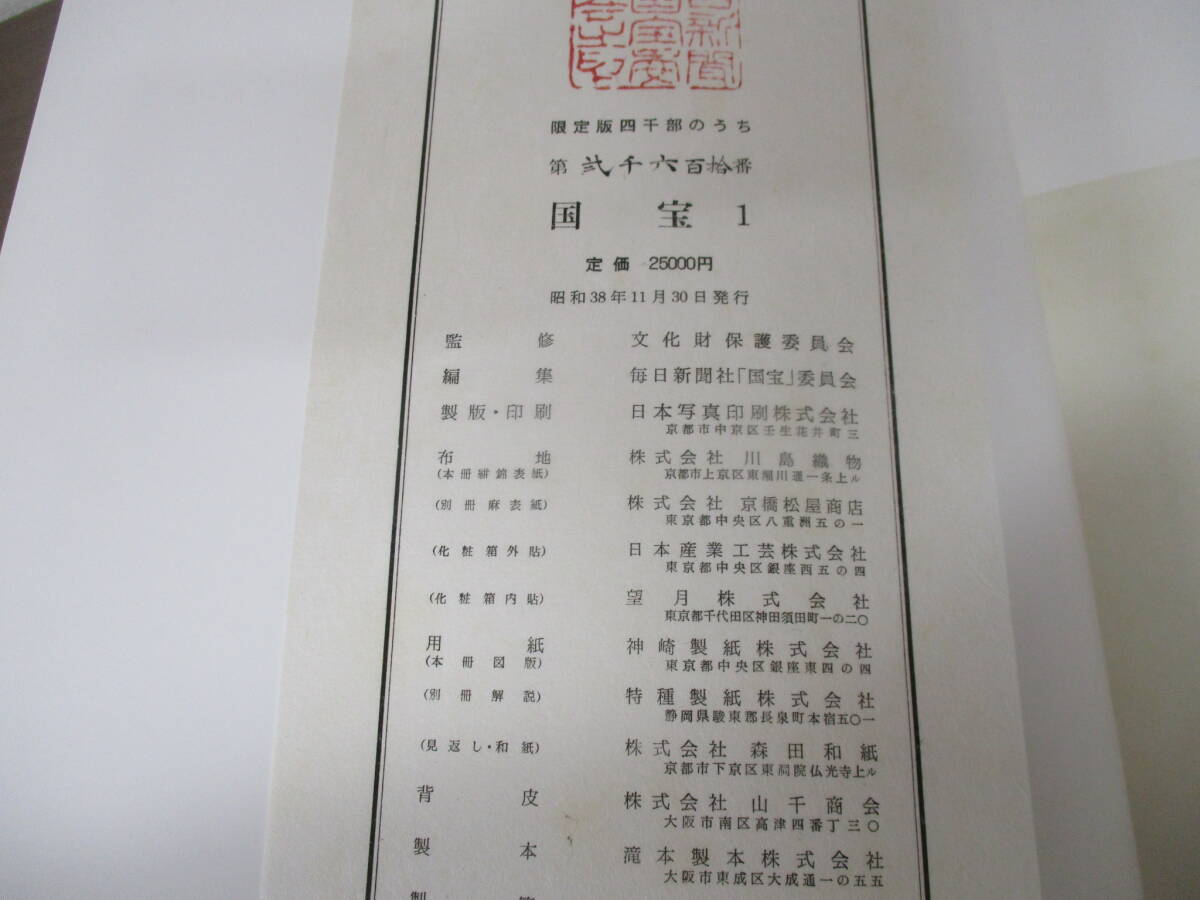 限定版四千部のうち
第 弐千六百拾番
国宝 1
定価 25000円
昭和38年11月30日発行
監修 文化財保護委員会
編集 毎日新聞社「国宝」委員会
製版・印刷 日本写真印刷株式会社
京都市中京区壬生花井町三
布地 株式会社 川島織物
(本冊絣錦表紙) 京都市上京区東堀川通一条上ル
(別冊麻表紙) 株式会社 京橋松屋商店
東京都中央区八重洲五の一
(化粧箱外貼) 日本産業工芸株式会社
東京都中央区銀座西五の四
(化粧箱内貼) 望月株式会社
東京都千代田区神田須田町一の二〇
用紙 神崎製紙株式会社
(本冊図版) 東京都中央区銀座東四の四
(別冊解説) 特種製紙株式会社
静岡県駿東郡長泉町本宿五〇一
(見返し・和紙) 株式会社 森田和紙
京都市下京区東洞院仏光寺上ル
背皮 株式会社 山千商会
大阪市南区高津四番丁三〇
製本 滝本製本株式会社
大阪市東成区大成通一の五五